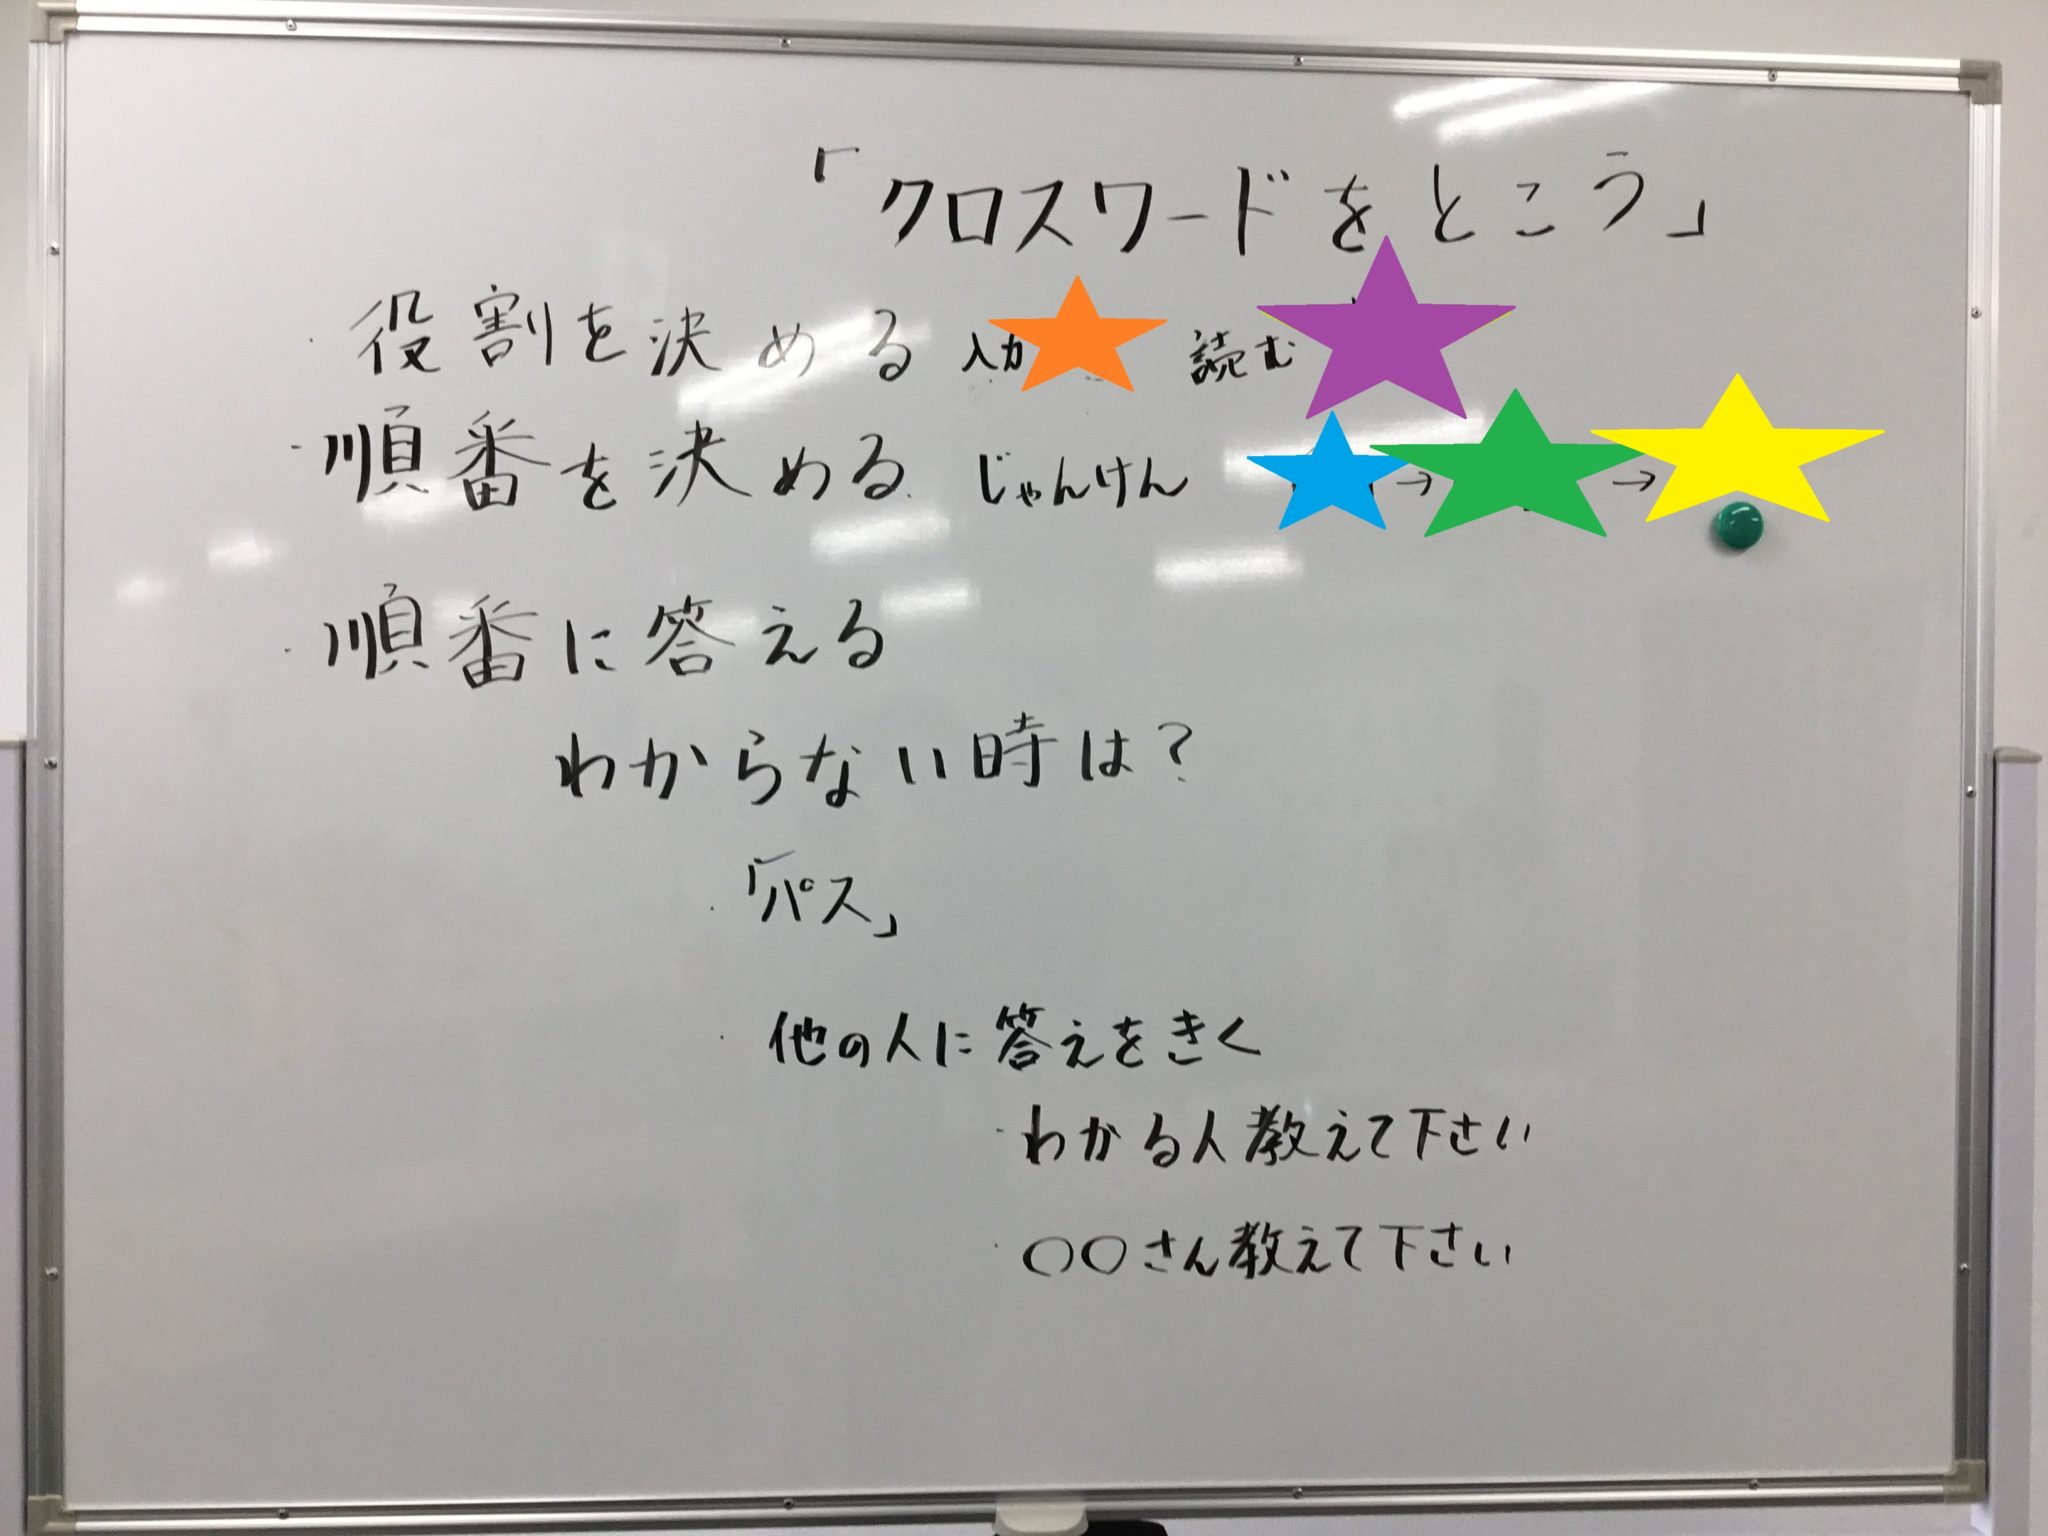 「クロスワードをとこう」
・役割を決める 入力 読む
・順番を決める じゃんけん → →
・順番に答える
わからない時は?
・「パス」
・他の人に答えをきく
・わかる人教えて下さい
・〇〇さん教えて下さい